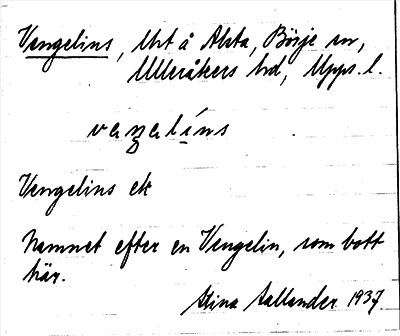 Vengelins, Urt å Alsta, Börje sn,
Ulleråkers hd, Upps. l.
vaŋəlíns
Vengelins ek
Namnet efter en Vengelin, som bott
här.
Stina Sallander 1937.